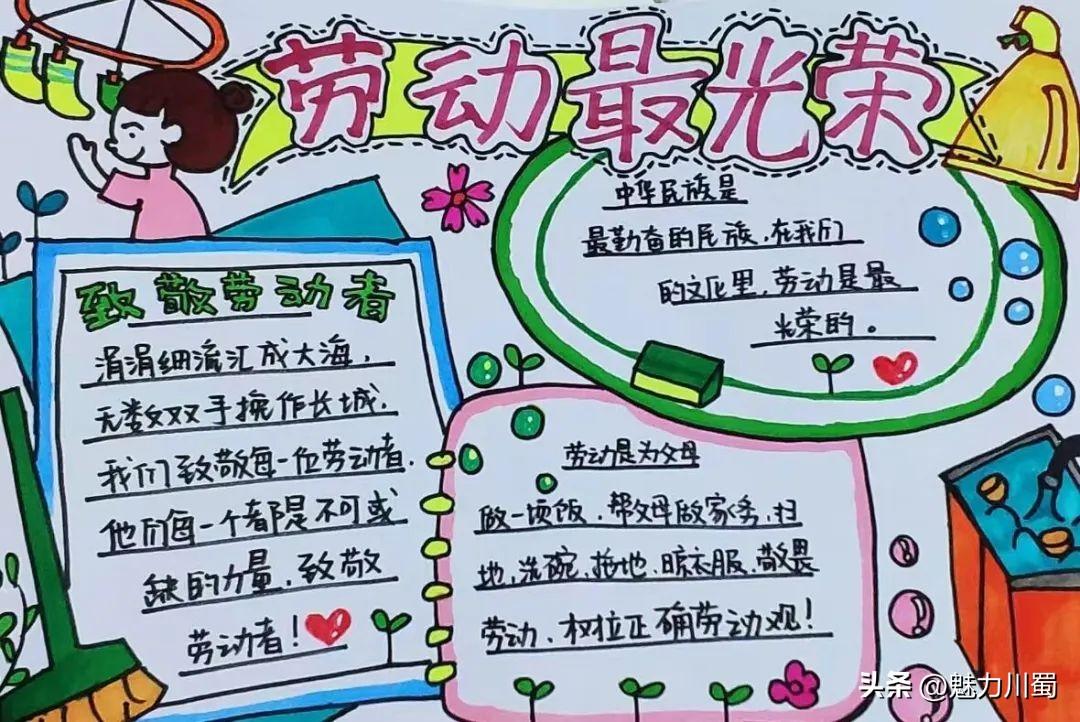 劳动最光荣
中华民族是
最勤奋的民族,在我们
的文化里,劳动是最
光荣的。
致敬劳动者
涓涓细流汇成大海,
无数双手擁作长城.
我们致敬每一位劳动者.
他们每一个都是不可或
缺的力量,致敬
劳动者!
劳动是为父母
做一顷饭.帮父母做家务,扫
地,洗碗,拖地.晾衣服,敬畏
劳动、权拉正确劳动观!
头条 @魅力川蜀